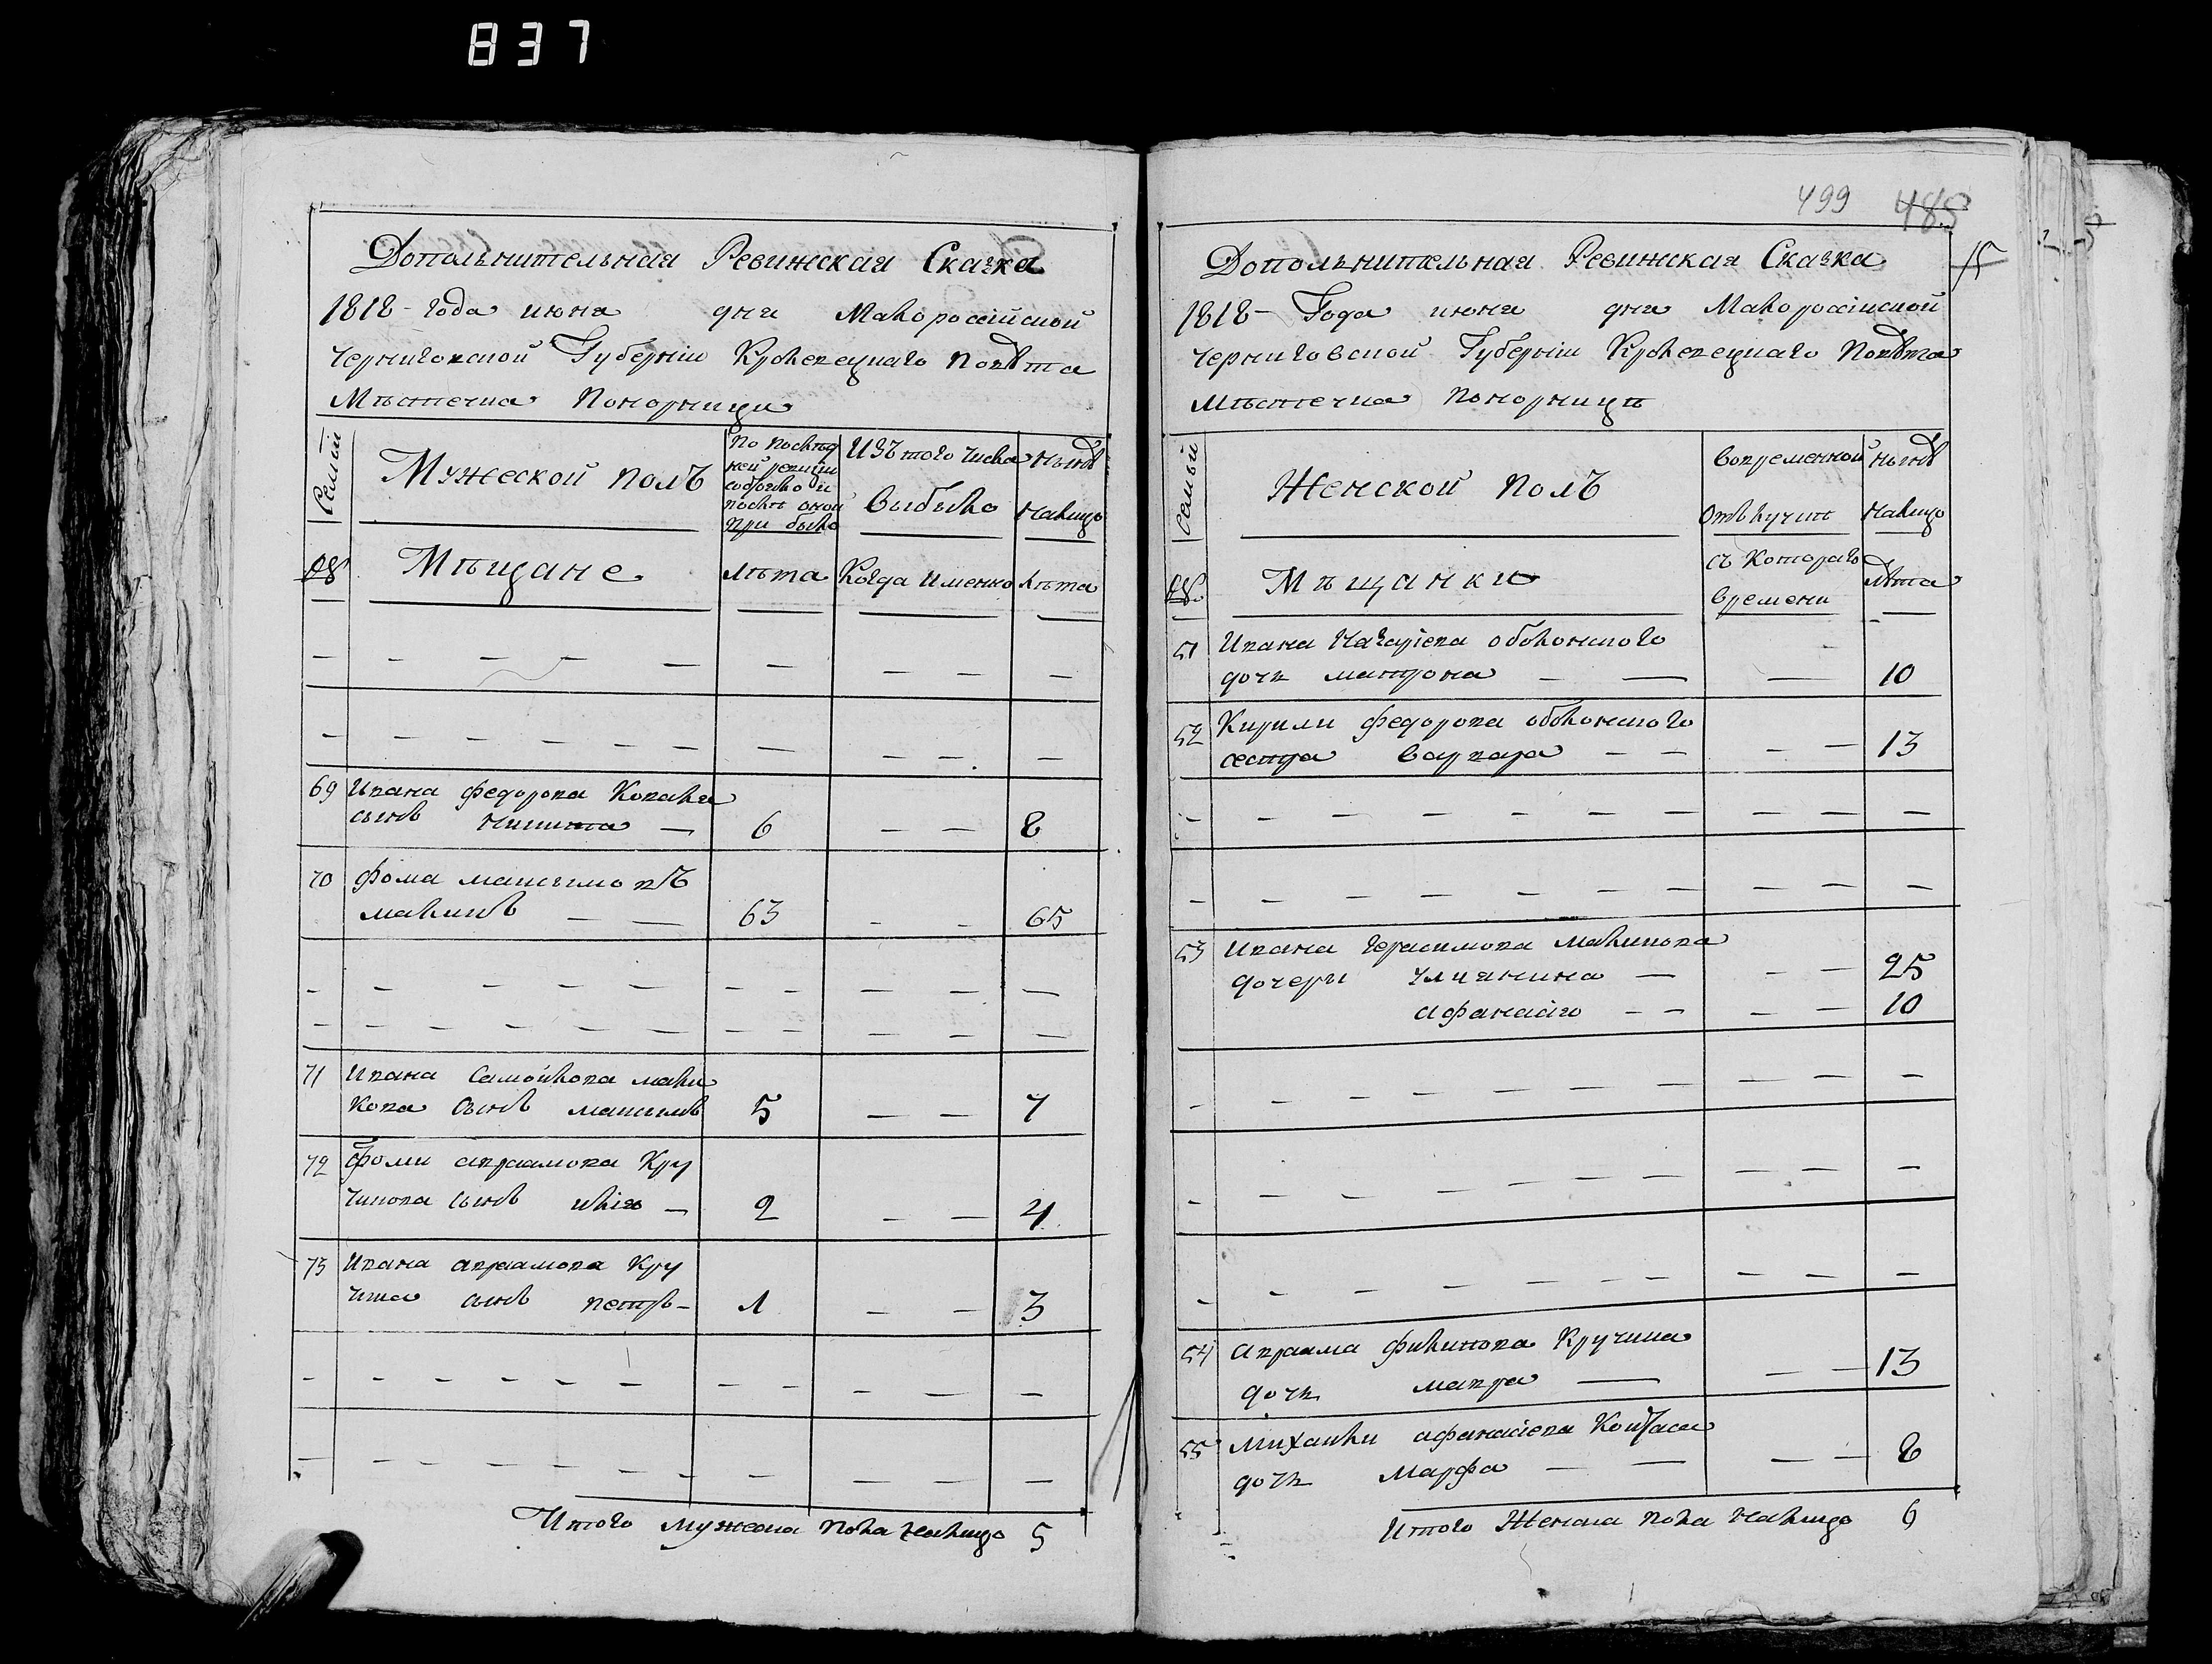 837
Дополънительная Ревижская Сказка
1818- года июня дня Малороссійской
Черниговской Губерніи Кролевецкаго повѣта
Мѣстечка Понорници
Семьи
Мужеской полъ
По послѣд
ней ревизіи
состояло и
послѣ оной
при было
Изъ того числа
выбыло
Нынѣ
налицо
№
Мѣщане
лѣта
Когда именно
лѣта
69 Ивана Федорова Коваля
сынъ Никита — 6 — — 8
70 Фома Максимовъ
Маликъ — — 63 — — 65
71 Ивана Самойлова Мали
кова сынъ Максимъ 5 — — 7
72 Фоми Авраамова Кру
чикова сынъ Илія — 2 — — 4
73 Ивана Авраамова Кру
чика сынъ Петръ — 1 — — 3
Итого мужеска пола налицо 5
499 485
15
Дополънителъная Ревижская Сказка
1818- Года июня дня Малороссійской
Черниговской Губерніи Кролевецкаго Повѣта
Мѣстечка Понорницѣ
Семьи
Женской полъ
Вовременной
Отлучкѣ
Нынѣ
налицо
№
Мѣщанки
съ Котораго
времени
Лѣта
51 Ивана Назаріева Оболонского
дочь Матрона — — — 10
52 Кирили Федорова Оболонского
сестра Варвара — — — — 13
53 Ивана Герасимова Маликова
дочери Улиянина — — — 25
Афанасія — — — — 10
54 Авраама Филипова Кручика
дочь Мавра — — — 13
55 Михайли Афанасіева
дочь Марфа — — — — 8
Итого Женска пола налицо 6